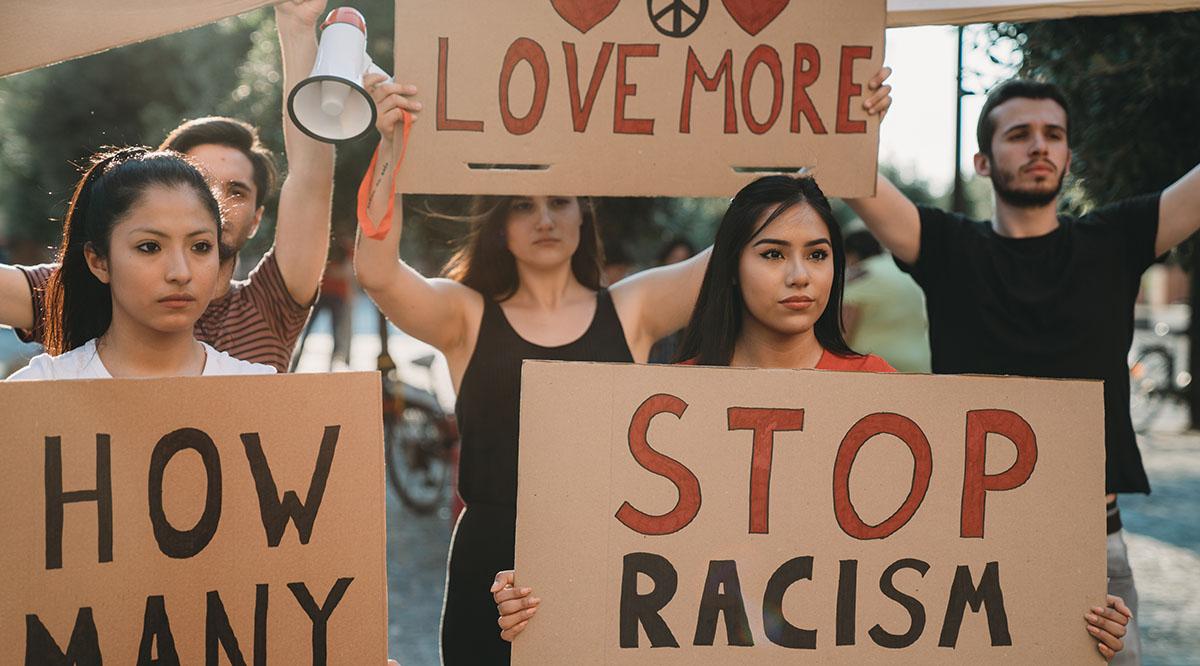 LOVE MORE
HOW
MANY
STOP
RACISM